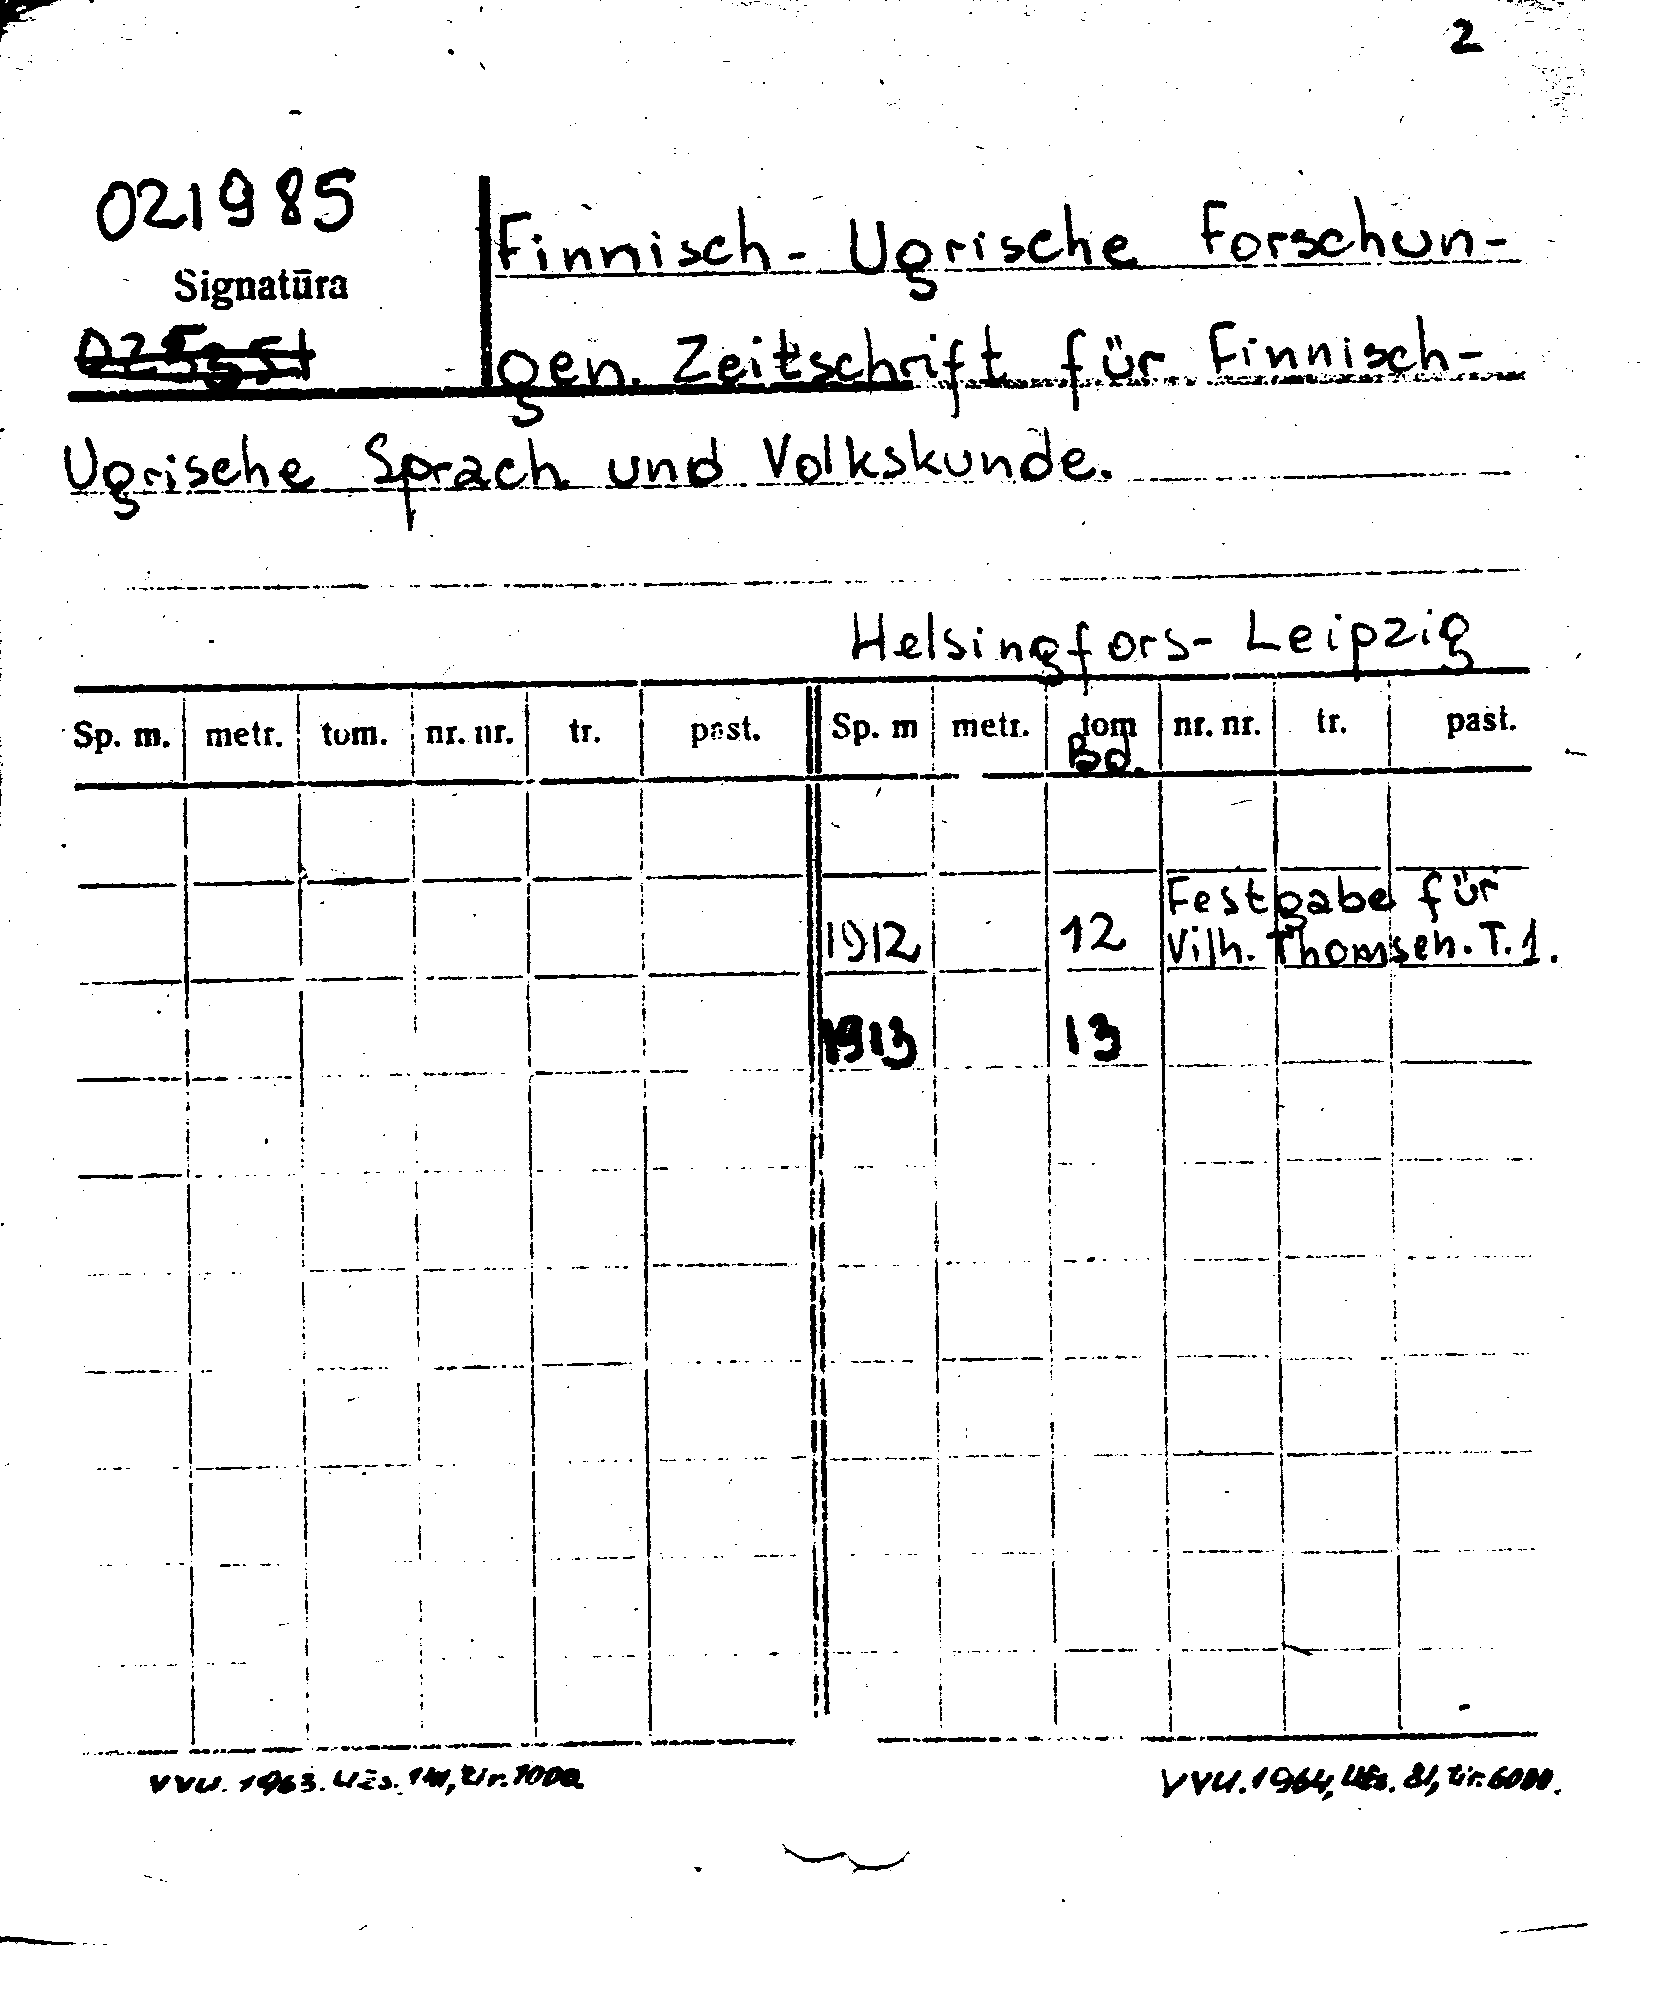 2
021985
Signatūra
Finnisch-Ugrische Forschun-
gen. Zeitschrift für Finnisch-
Ugrische Sprach und Volkskunde.
Helsingfors-Leipzig
Sp. m. metr. tom. nr. nr. tr. past. Sp. m metr. tom nr. nr. tr. past.
Bd.
Festgabe für
1912 12 Vilh. Thomsen. T.1.
1913 13
VVU. 1963. Užs. tir. 1000
VVU. 1964, Užs. 81, tir. 6000.